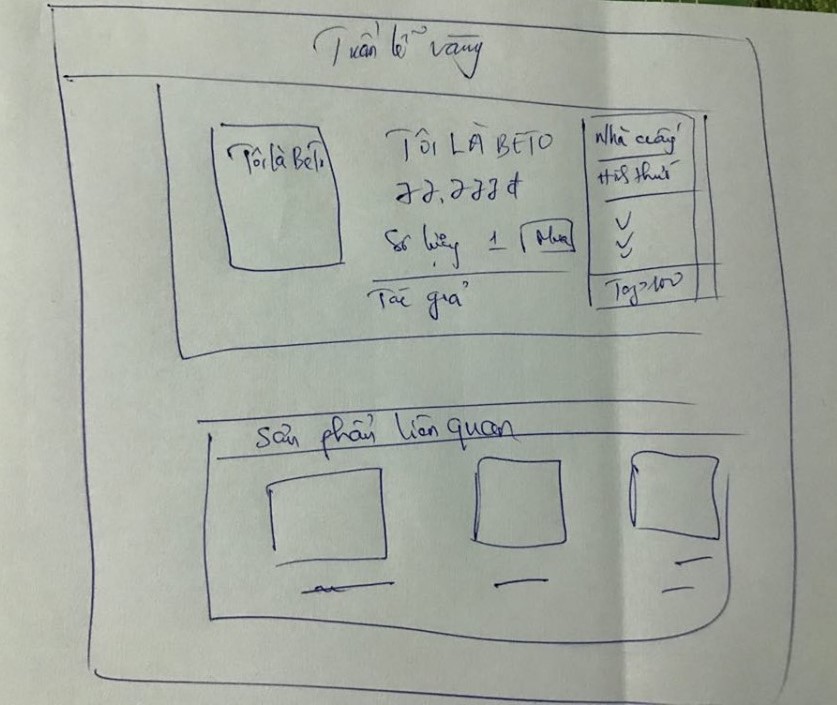 Tuần lễ vàng
Tôi là Bêtô
TÔI LÀ BÊTO
77.777đ
Số lượng 1 Mua
Tác giả
Nhà cung
Hình thức
Top 100
Sản phẩm liên quan